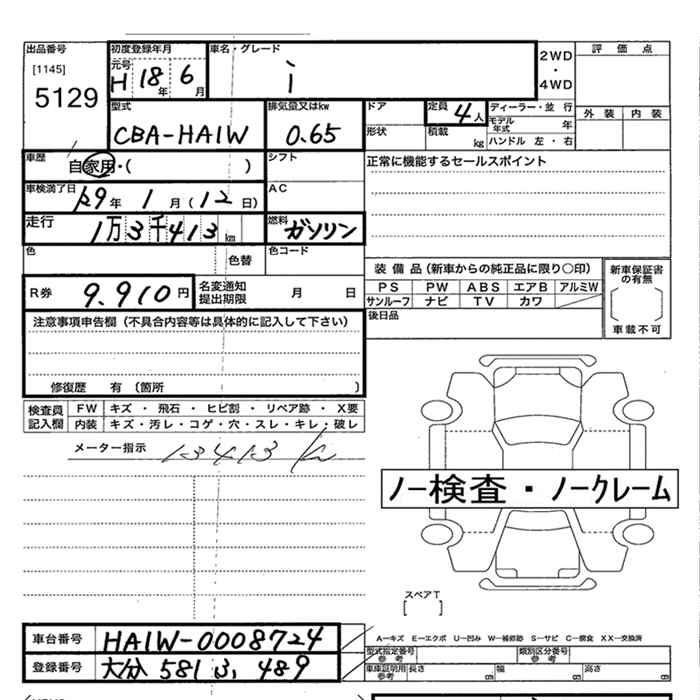 出品番号
[1145]
5129
初度登録年月
元号
H 18年 6月
車名・グレード
i
2WD
・
4WD
評価点
外装 内装
型式
CBA-HA1W
排気量又はkw
0.65
ドア
形状
定員
4人
積載 kg
ディーラー・並行
モデル年式 年
ハンドル 左・右
車歴
自家用・( )
シフト
正常に機能するセールスポイント
車検満了日
29年 1月(12日)
AC
走行
1万3千413km
燃料
ガソリン
色
色替
色コード
装備品(新車からの純正品に限り○印)
PS PW ABS エアB アルミW
サンルーフ ナビ TV カワ
新車保証書の有無
[ ]
車載不可
後日品
R券
9.910円
名変通知
提出期限
月 日
注意事項申告欄(不具合内容等は具体的に記入して下さい)
修復歴 有 〔箇所 〕
検査員
記入欄
FW キズ・飛石・ヒビ割・リペア跡・X要
内装 キズ・汚レ・コゲ・穴・スレ・キレ・破レ
メーター指示
13413 k
ノー検査・ノークレーム
スペアT
[ ]
車台番号
HA1W-0008724
登録番号
大分 581 489
A-キズ E-エクボ U-凹み W-補修跡 S-サビ C-腐食 XX-交換済
型式指定番号
参考
類別区分番号
参考
車庫証明用
参考
長さ 幅 高さ